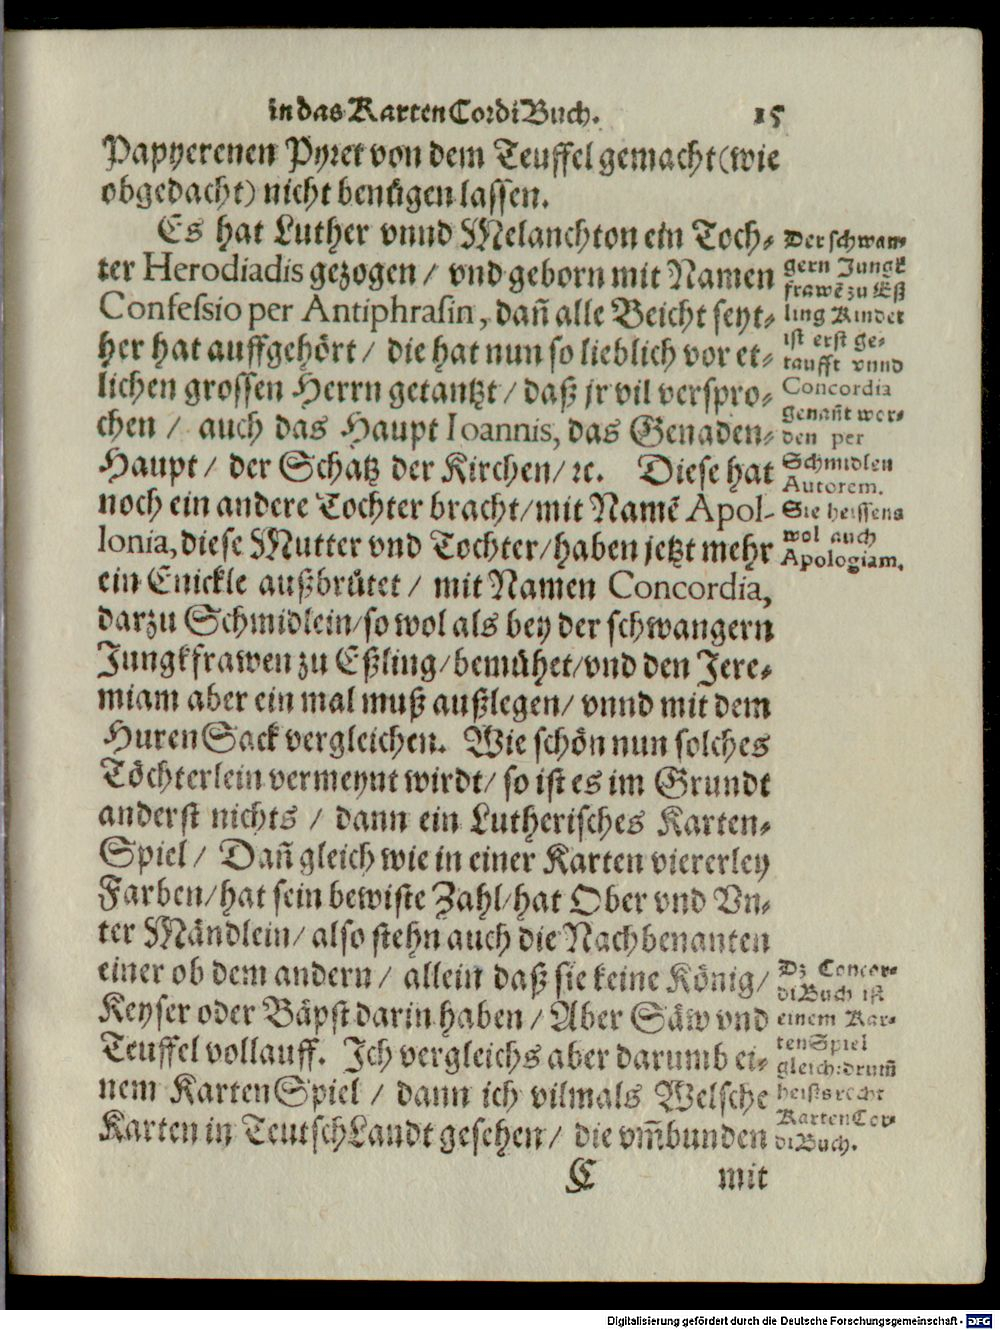 in das Karten CordiBuch. 15
Papyerenen Pyret von dem Teuffel gemacht (wie
obgedacht) nicht benügen lassen.
Es hat Luther vnnd Melanchton ein Toch-
ter Herodiadis gezogen / vnd geborn mit Namen
Confessio per Antiphrasin, dañ alle Beicht seyt-
her hat auffgehört / die hat nun so lieblich vor et-
lichen grossen Herrn getantzt / daß jr vil verspro-
chen / auch das Haupt Ioannis, das Genaden-
Haupt / der Schatz der Kirchen / ꝛc. Diese hat
noch ein andere Tochter bracht / mit Namẽ Apol-
lonia, diese Mutter vnd Tochter / haben jetzt mehr
ein Enickle außbrütet / mit Namen Concordia,
darzu Schmidlein / so wol als bey der schwangern
Jungkfrawen zu Eßling / bemühet / vnd den Jere-
miam aber ein mal muß außlegen / vnnd mit dem
HurenSack vergleichen. Wie schön nun solches
Töchterlein vermeynt wirdt / so ist es im Grundt
anderst nichts / dann ein Lutherisches Karten-
Spiel / Dañ gleich wie in einer Karten viererley
Farben / hat sein bewiste Zahl / hat Ober vnd Vn-
ter Mändlein / also stehn auch die Nachbenanten
einer ob dem andern / allein daß sie keine König /
Keyser oder Bäpst darin haben / Aber Säw vnd
Teuffel vollauff. Ich vergleichs aber darumb ei-
nem KartenSpiel / dann ich vilmals Welsche
Karten in TeutschLandt gesehen / die vm̃bunden
C mit
Der schwan-
gern Jungk
frawẽ zu Eß
ling Kinder
ist erst ge-
taufft vnnd
Concordia
genañt wor-
den per
Schmidlen
Autorem.
Sie heissens
wol auch
Apologiam.
Dz Concor-
diBuch ist
einem Kar-
tenSpiel
gleich: drum̃
heists recht
KartenCor-
diBuch.
Digitalisierung gefördert durch die Deutsche Forschungsgemeinschaft - DFG